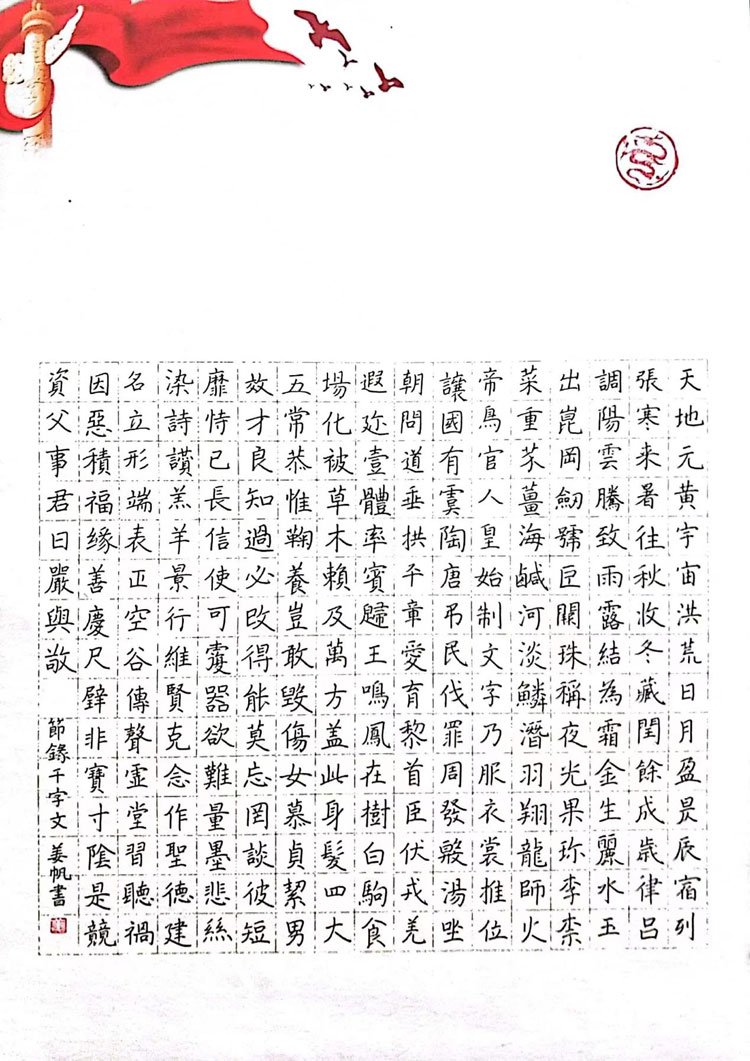 天地元黄宇宙洪荒日月盈昃辰宿列
張寒来暑往秋收冬藏閏餘成歲律吕
調陽雲騰致雨露結為霜金生麗水玉
出崑岡劒號巨闕珠稱夜光果珎李柰
菜重芥薑海鹹河淡鱗潛羽翔龍師火
帝鳥官人皇始制文字乃服衣裳推位
讓國有虞陶唐弔民伐罪周發殷湯坐
朝問道垂拱平章愛育黎首臣伏戎羌
遐迩壹體率賓歸王鳴鳳在樹白駒食
場化被草木賴及萬方盖此身髮四大
五常恭惟鞠養豈敢毀傷女慕貞絜男
效才良知過必改得能莫忘罔談彼短
靡恃己長信使可覆器欲難量墨悲絲
染詩讚羔羊景行維賢克念作聖德建
名立形端表正空谷傳聲虛堂習聽禍
因惡積福緣善慶尺璧非寶寸陰是競
資父事君曰嚴與敬
節録千字文 姜帆書